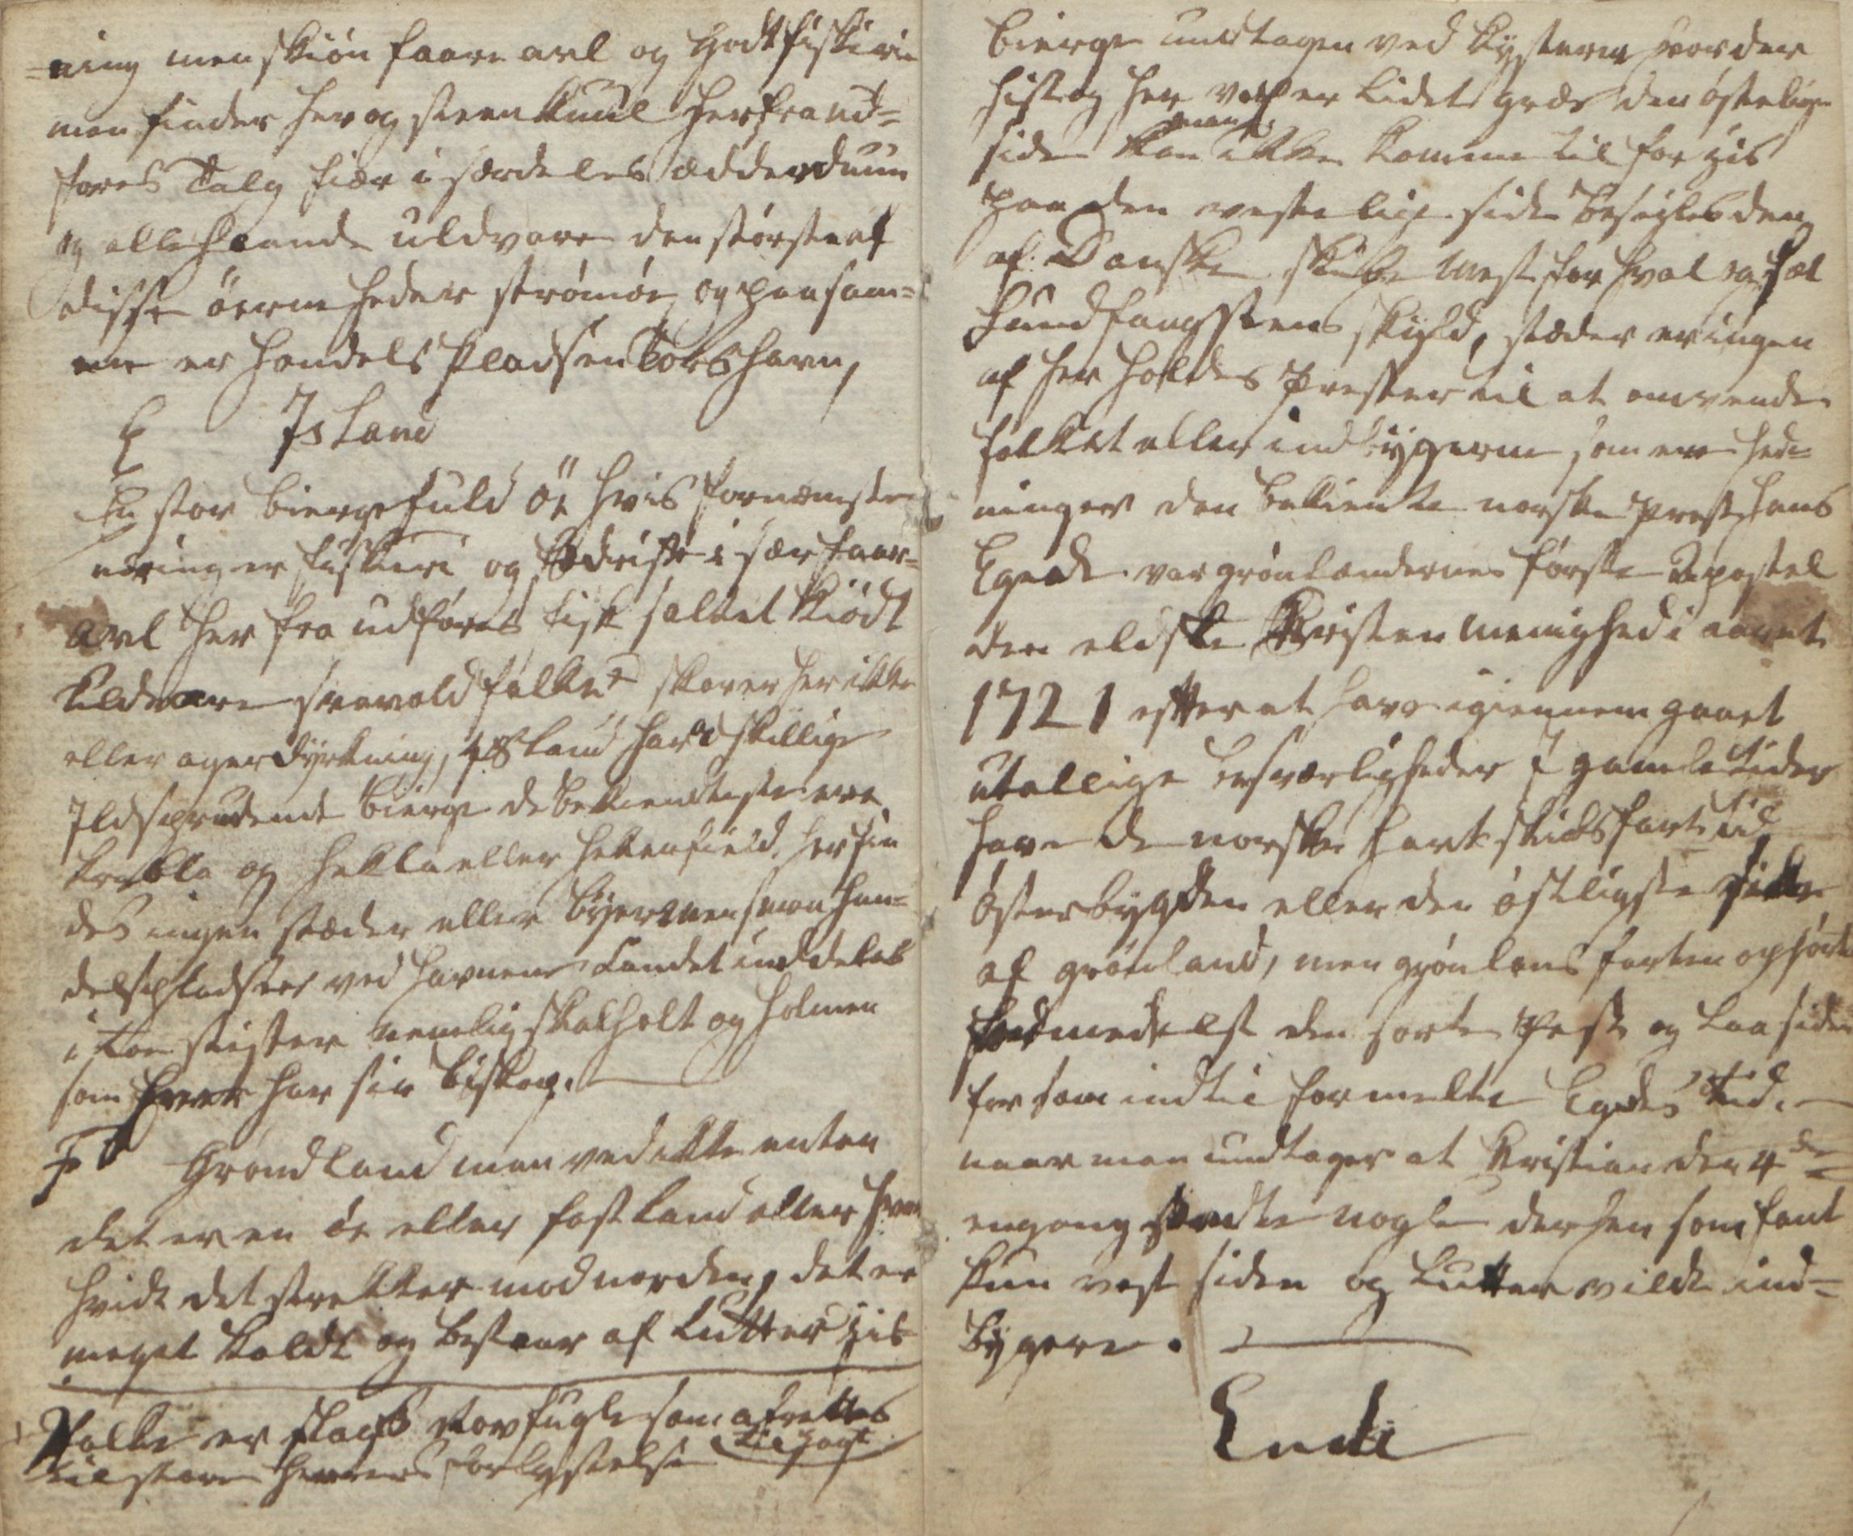 =ning men skiön faare avl og Godt fiskerie
men finder her og steen kuul herfra ud=
föres Talg fiær i særdeles ædderduun
og allehaande uldvare den störste af
disse öerne heder strömöe og paa sam=
me er handels Pladsen Torshavn,
E Island
En stor biergefuld öe hvis fornemste
næring er fiskeri og qvædrift i sær faar=
avl her fra udföres fisk saltet kiödt
Uldvare svovel falke skove er her ikke
eller agerdÿrkning, Island har adskillige
Ildsprudende bierge de bekiendteste ere
krabla og Hekla eller Hekenfield, her fin
des ingen stæder eller bÿer men smaa han=
delspladser ved havnene Landet inddeles
i toe stifter nemlig skalholt og holmen
som hver har sin biskop.
F Grönland man ved ikke enten
det er en öe eller fast land eller hvor
hvidt det strekker mod norden, det er
meget koldt og bestaar af lutter iis
Falke er slags Rovfugle som afrettes
til store herrers forlystelse til jagt
bierge undtagen ved kÿsterne hvor der
hist og her voxer lidet græs den östelige
side kan man ikke komme til for iis
paa den vestelige side besegles den
af Danske skibe mest for hval og sæl
hundfangstens skyld, stæder er ingen
af her holdes prester til at omvende
folket eller indbÿgerne som ere hed=
ninger den bekiente norske prest Hans
Egede var grönlændernes förste Apostel
den eldste Kristen menighed i aaret
1721 efter at have igiennem gaaet
utallige besværligheder I gamle tider
have de norske havt skibsfart til
österbygden eller den östligste side
af grönland, men grönlans farten ophörte
formedelst den sorte Pest og laa siden
for som indtil formelte Egedes tid.
naar man undtager at Kristian den 4de
engang sendte nogle derhen som fant
kun vest siden og lutter vilde ind=
bÿgere.
Ende